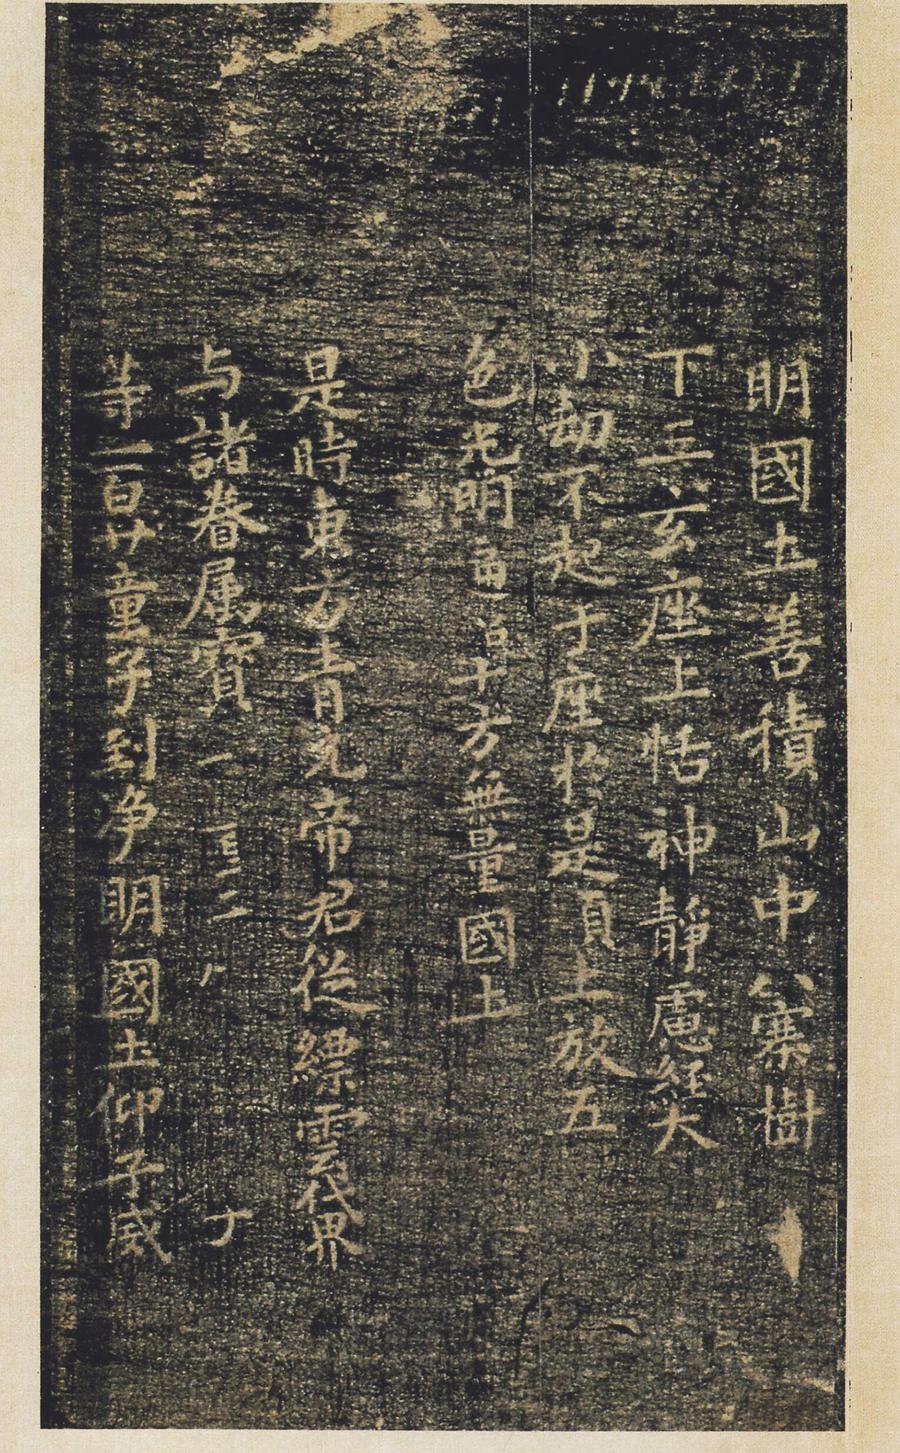 明國土善積山中騫樹
下三玄座上恬神靜慮經大
小劫不起于座於是頂上放五
色光明遍 十方無量國土
是時東方青元帝君從縹雲 界
与諸眷属寶
等一百廿童子到淨明國土仰 威